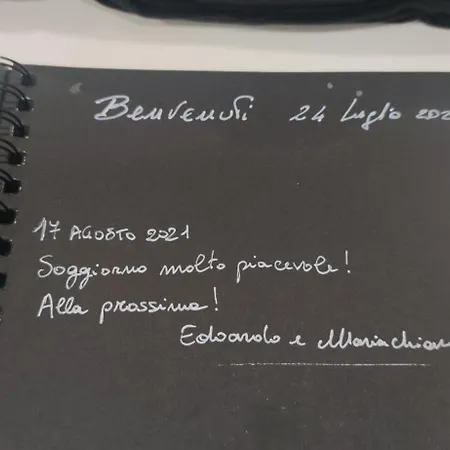 Benvenuti 24 Luglio 202
17 AGOSTO 2021
Soggiorno molto piacevole!
Alla prossima!
Edoardo e Mariachiar